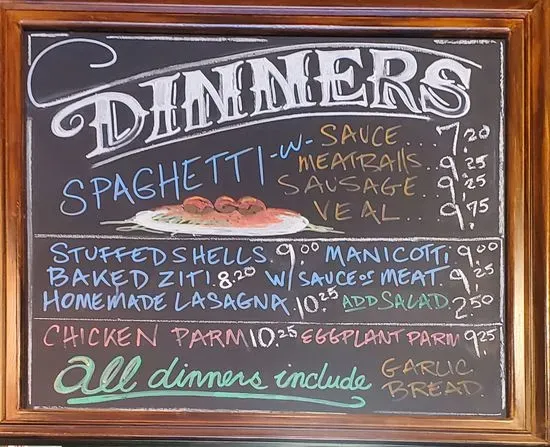 DINNERS
SPAGHETTI -W- SAUCE... 7.20
MEATBALLS 9.25
SAUSAGE 9.25
VEAL.. 9.75
STUFFED SHELLS. 9.00 MANICOTTI. 9.00
BAKED ZITI. 8.20 W/ SAUCE or MEAT. 9.25
HOMEMADE LASAGNA. 10.25 ADD SALAD. 2.50
CHICKEN PARM 10.25 EGGPLANT PARM 9.25
all dinners include GARLIC
BREAD